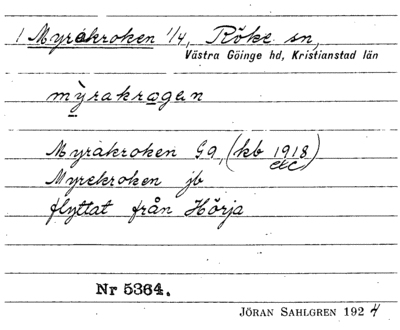 1 Myrakroken 1/4, Röke sn,
Västra Göinge hd, Kristianstad län
mỳrakrogen
Myrakroken Ga, (kb 1918 etc)
Myrekroken jb
flyttat från Hörja
Nr 5364.
JÖRAN SAHLGREN 1924